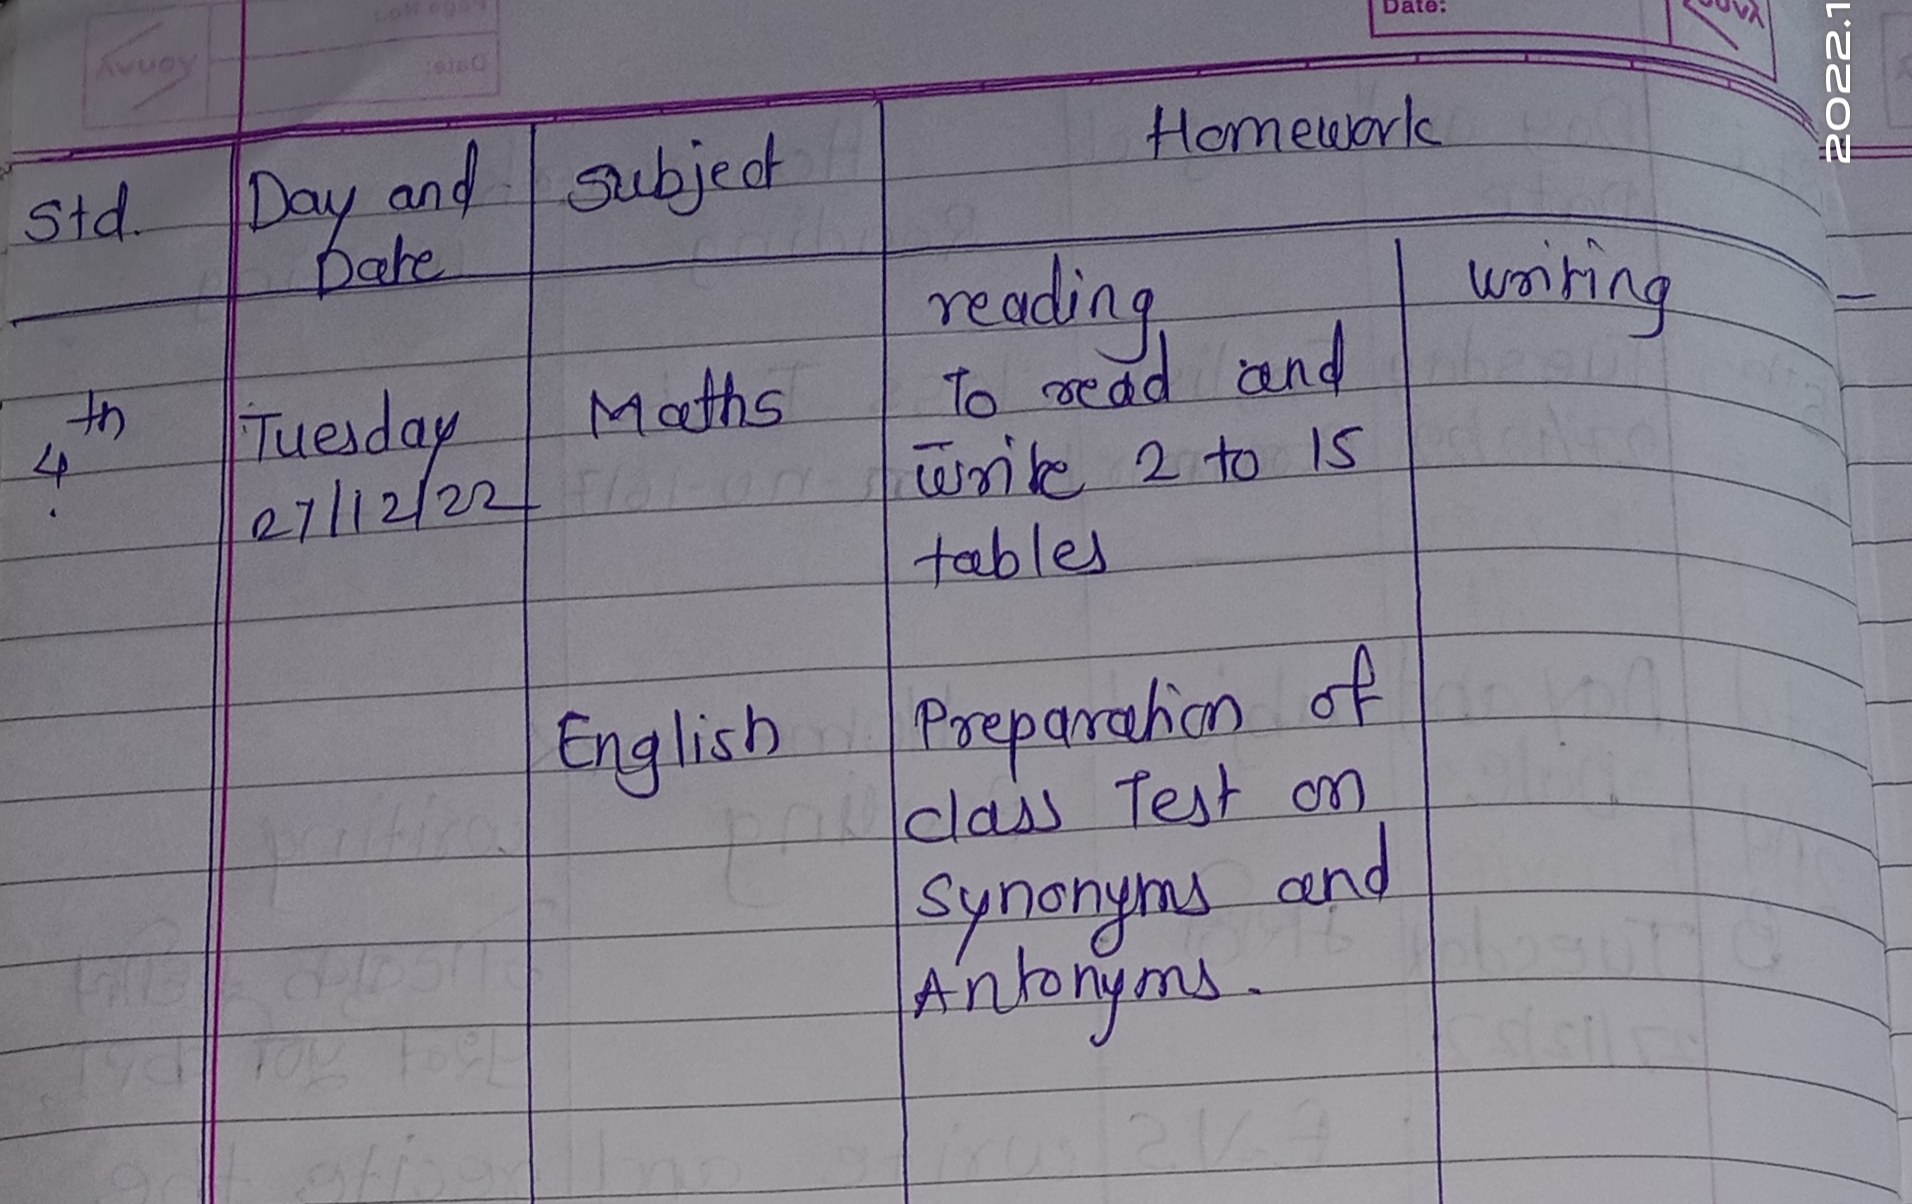 Date:
2022.1
Homework
Std. Day and Subject
Date
reading writing
4th Tuesday Maths To read and
27/12/22 write 2 to 15
tables
English Preparation of
class Test on
Synonyms and
Antonyms.